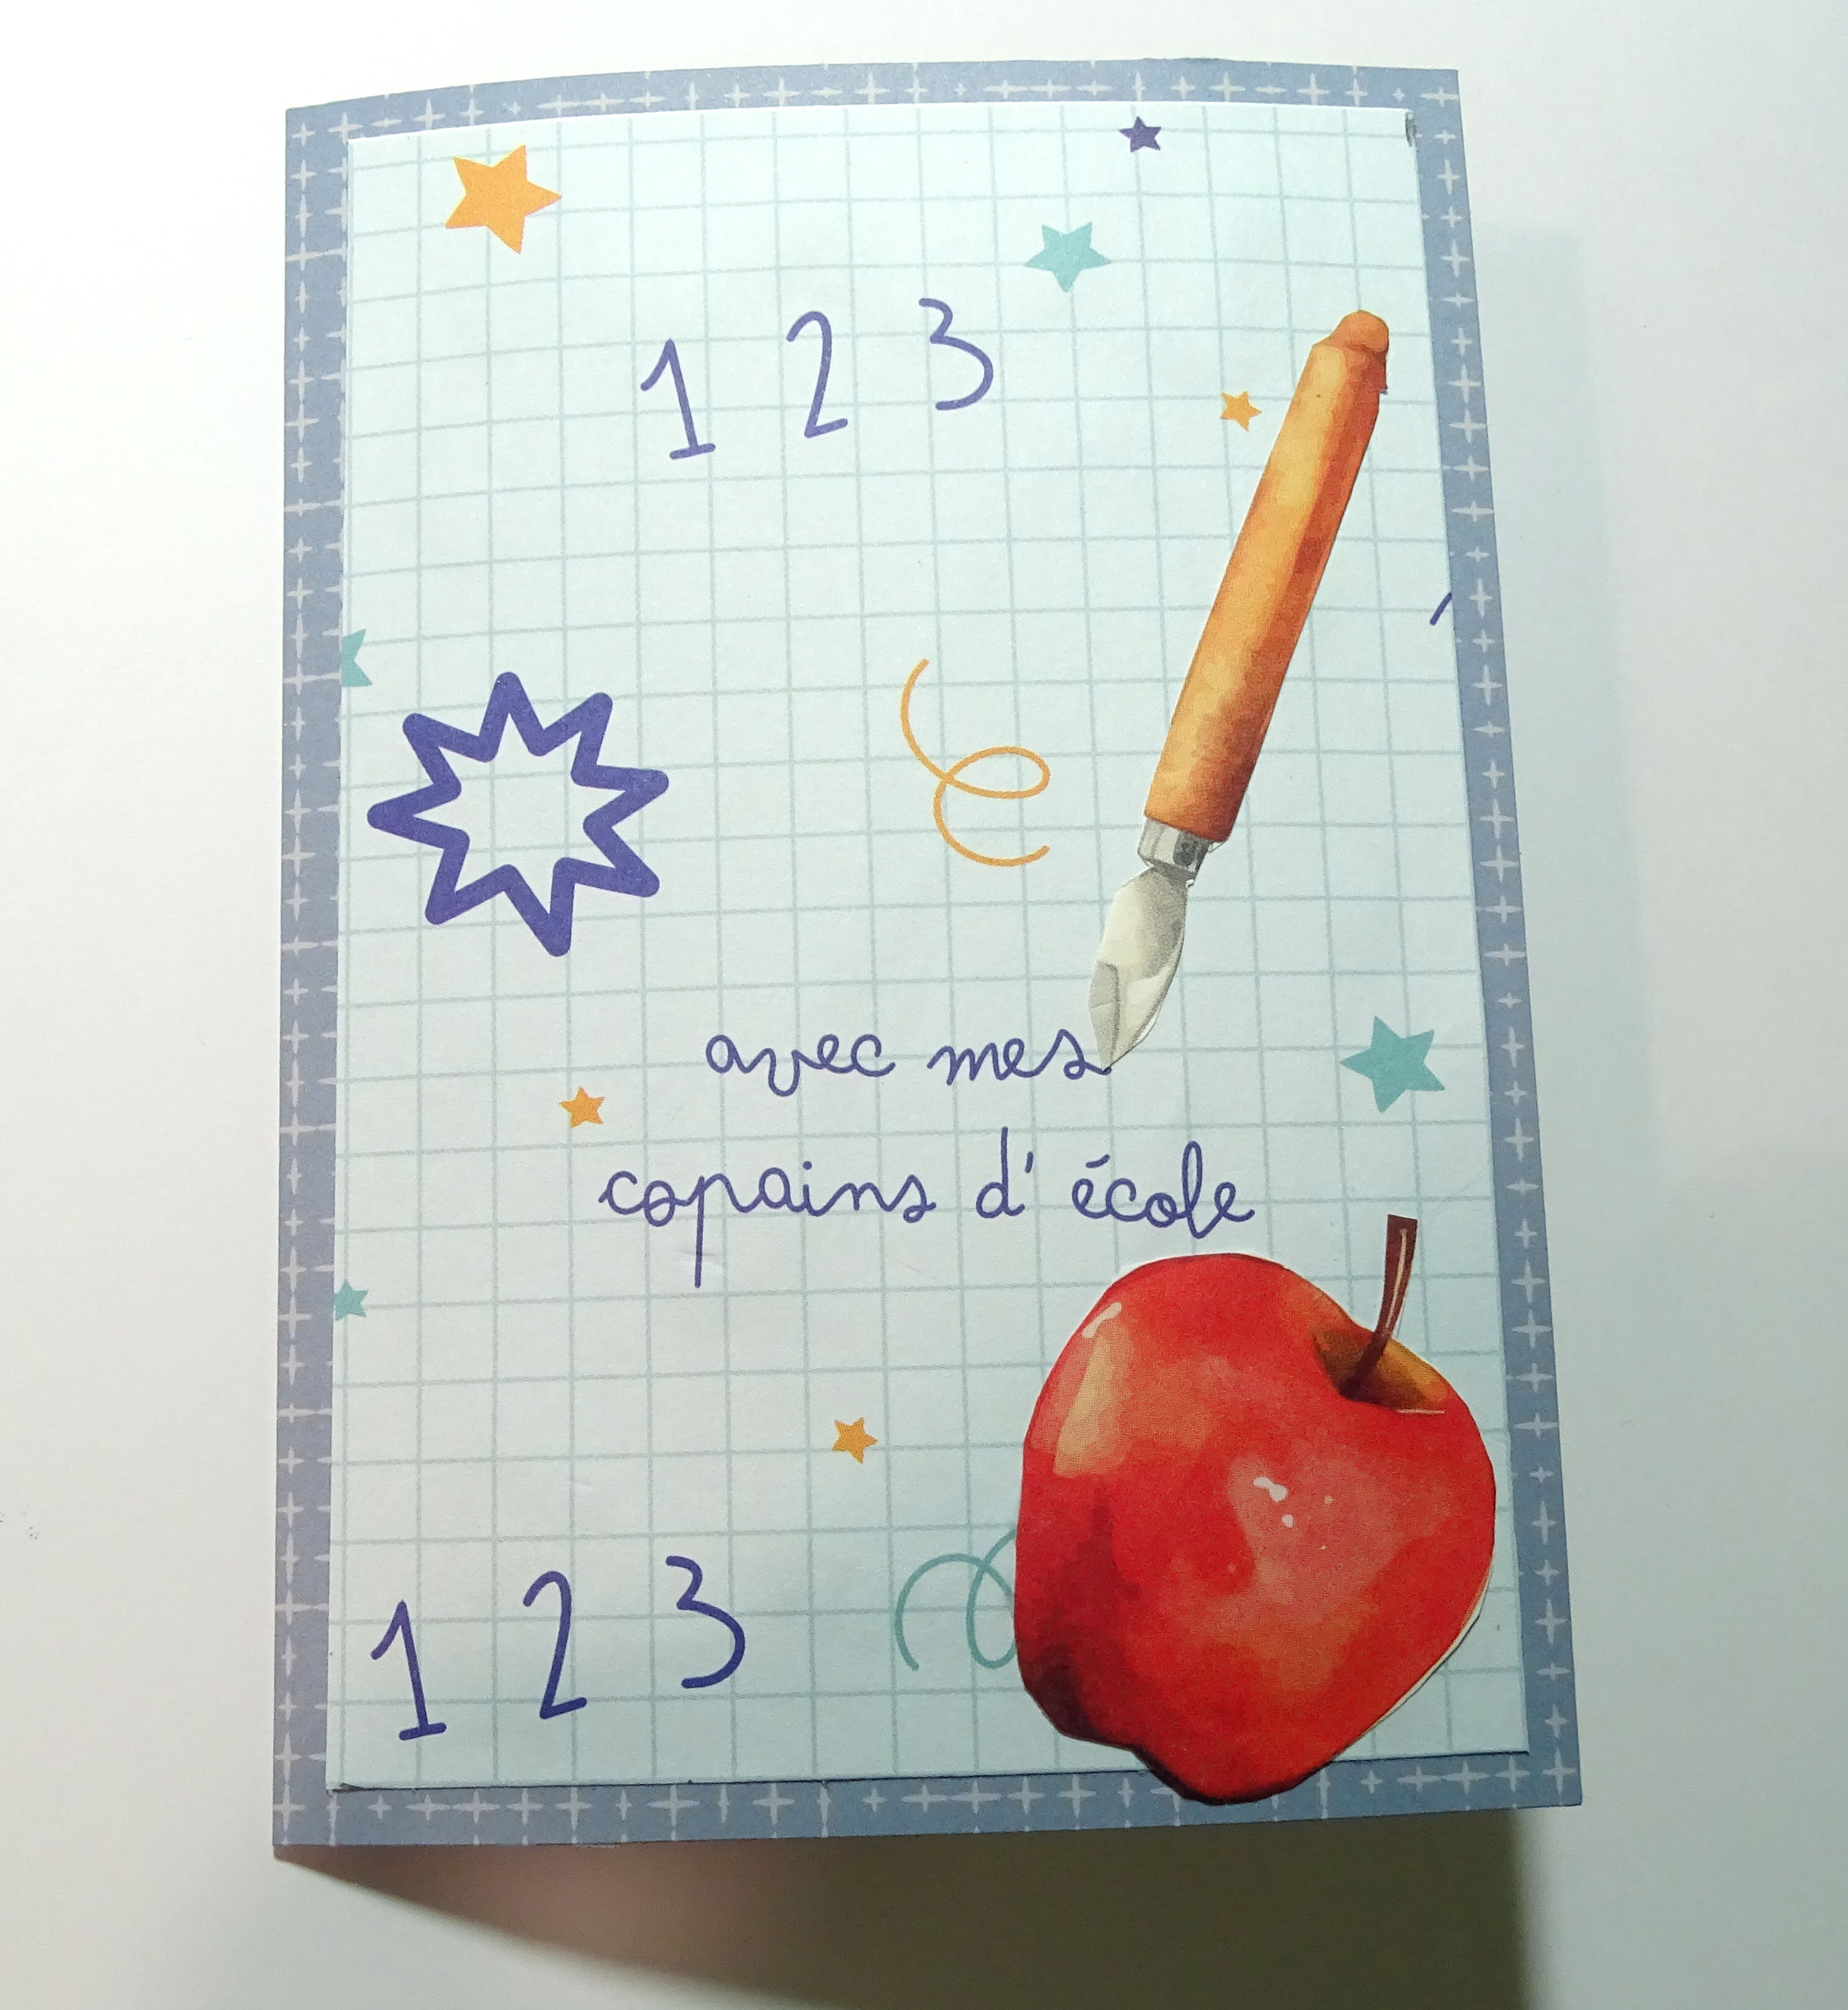 1 2 3
avec mes
copains d'école
1 2 3